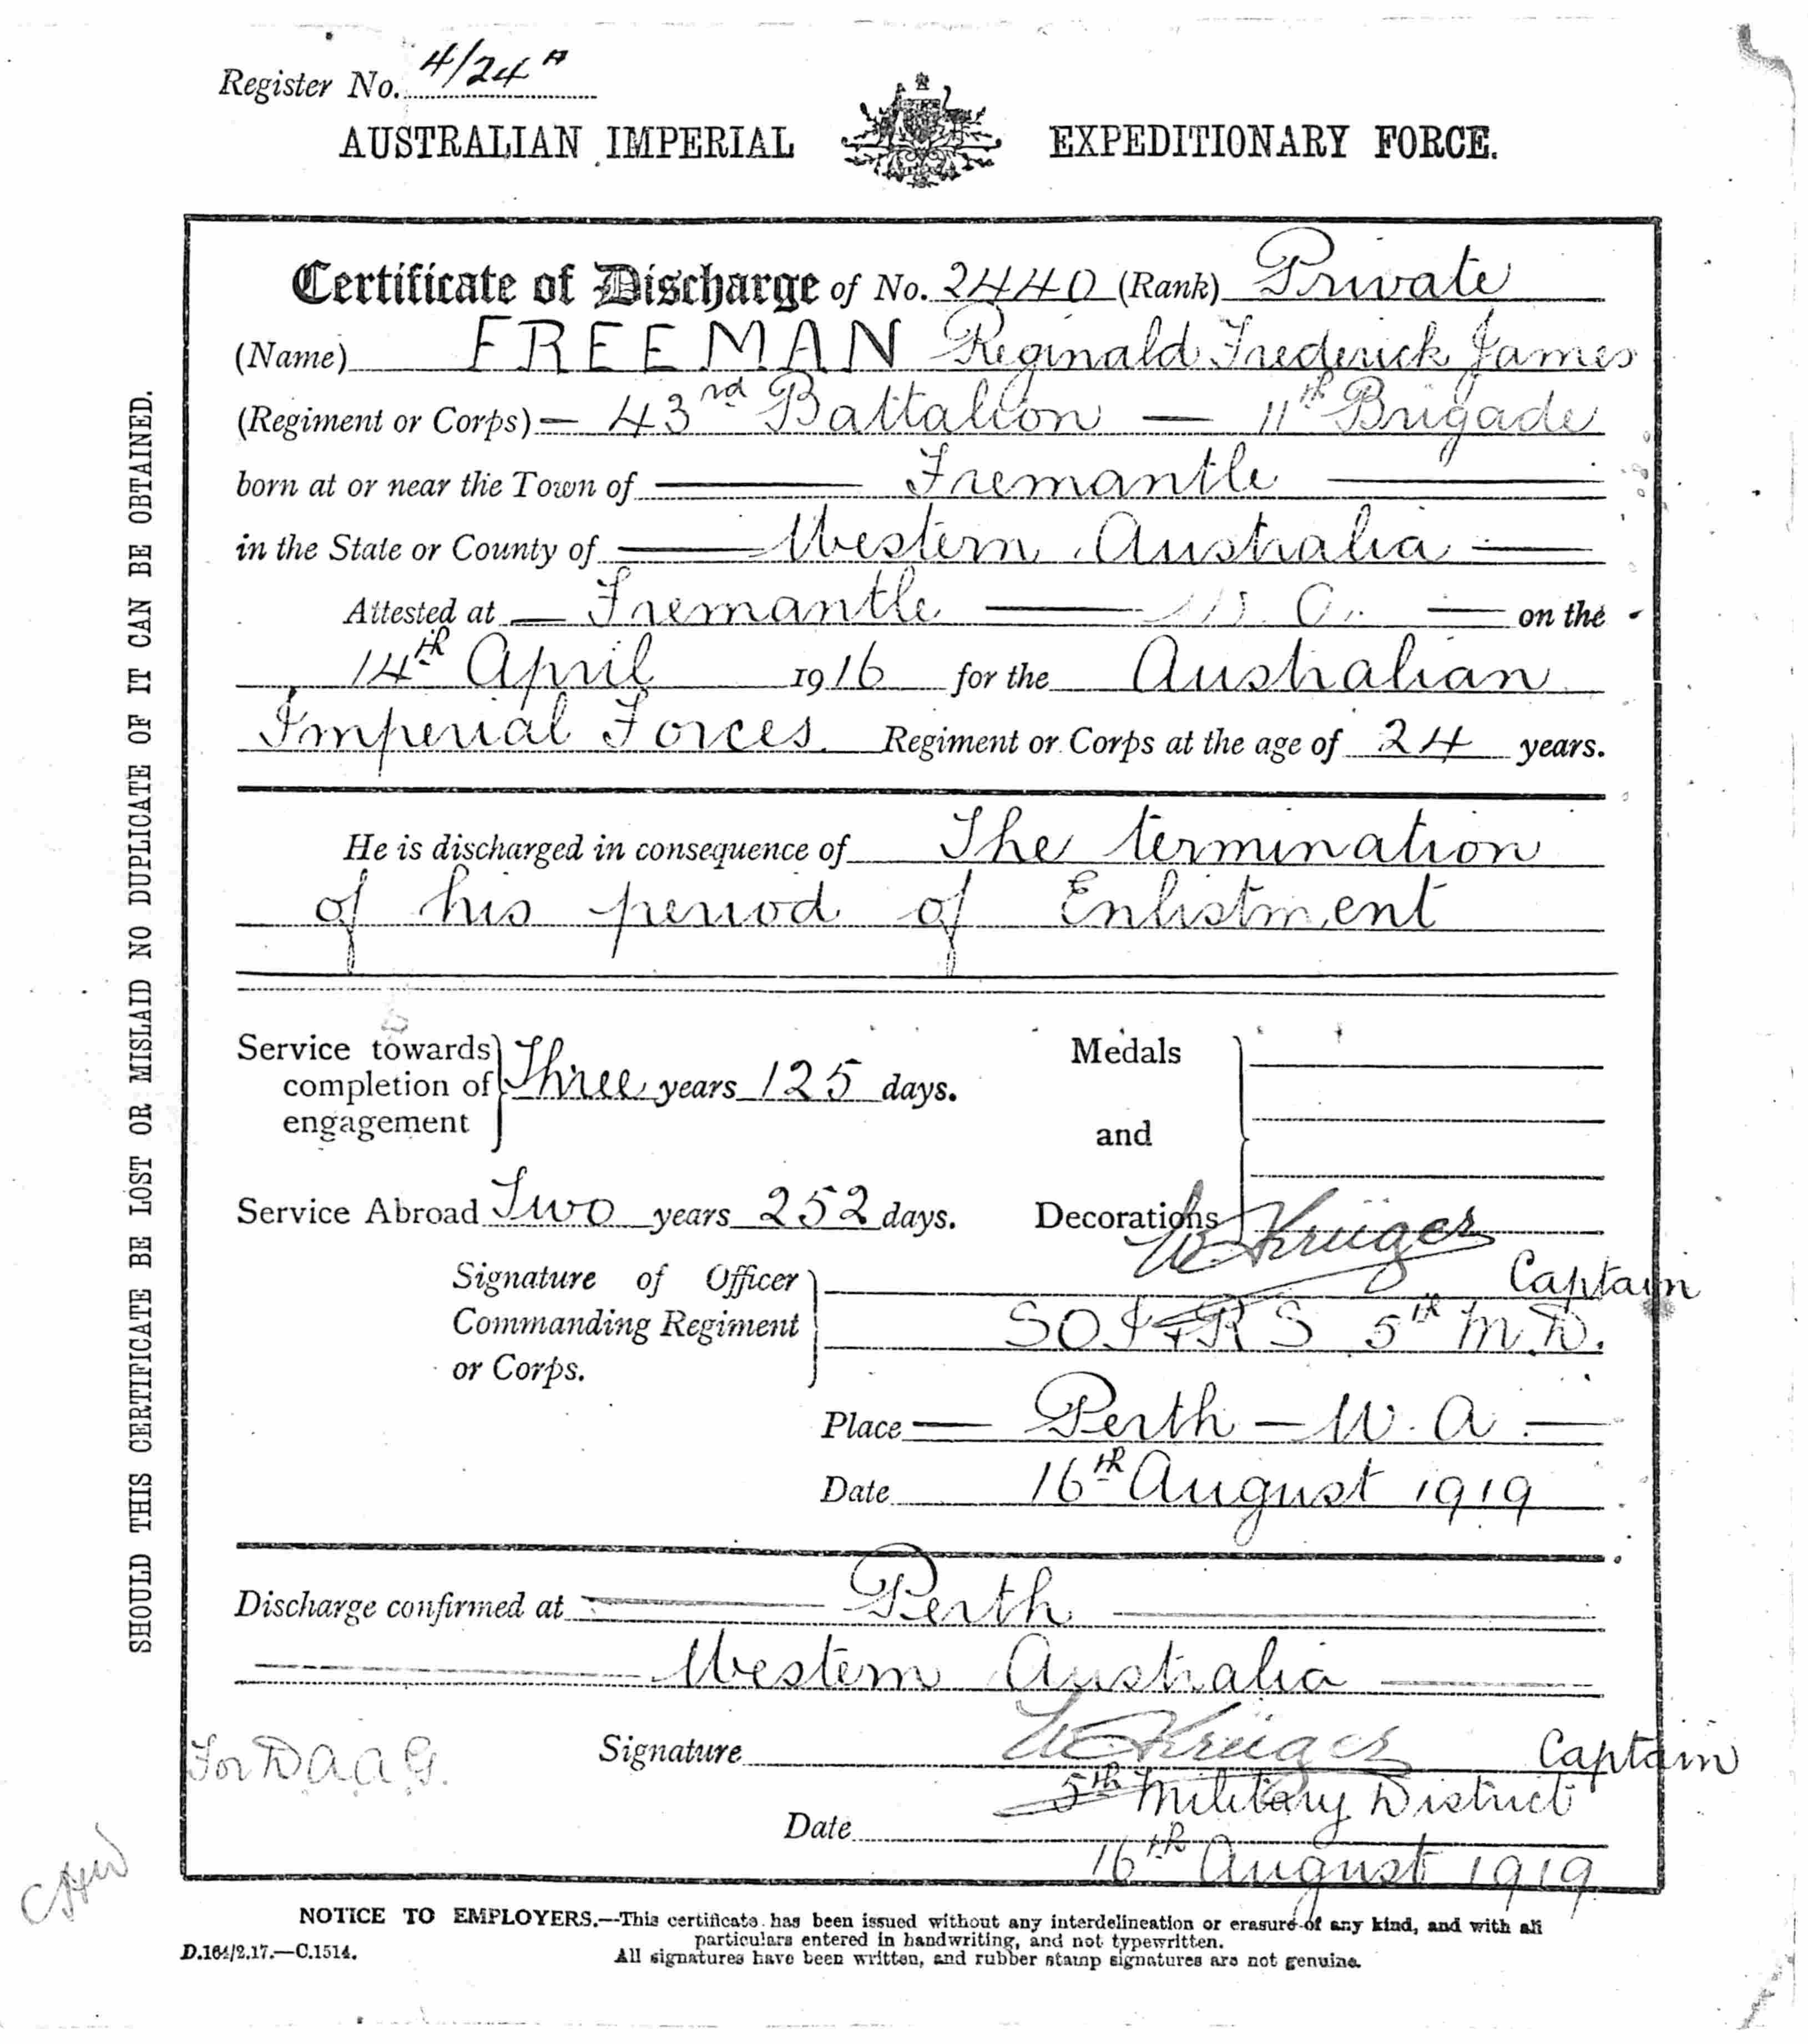 Register No. 4/24A
AUSTRALIAN IMPERIAL EXPEDITIONARY FORCE.
Certificate of Discharge of No. 2440 (Rank) Private
(Name) FREEMAN Reginald Frederick James
(Regiment or Corps) — 43rd Battalion — 11th Brigade
born at or near the Town of — Fremantle —
in the State or County of — Western Australia —
Attested at — Fremantle — W. A. — on the
14th April 1916 for the Australian
Imperial Forces. Regiment or Corps at the age of 24 years.
He is discharged in consequence of The termination
of his period of Enlistment
Service towards completion of engagement } Three years 125 days.
Medals
and
Service Abroad Two years 252 days.
Decorations
Signature of Officer Commanding Regiment or Corps. } W Krüger Captain
SOI & RS 5th M.D.
Place — Perth — W. A. —
Date 16th August 1919
Discharge confirmed at — Perth —
— Western Australia —
For D A A G. Signature W Krüger Captain
5th Military District
Date 16th August 1919
NOTICE TO EMPLOYERS.—This certificate has been issued without any interdelineation or erasure of any kind, and with all
particulars entered in handwriting, and not typewritten.
D.164/2.17.—C.1514. All signatures have been written, and rubber stamp signatures are not genuine.
SHOULD THIS CERTIFICATE BE LOST OR MISLAID NO DUPLICATE OF IT CAN BE OBTAINED.